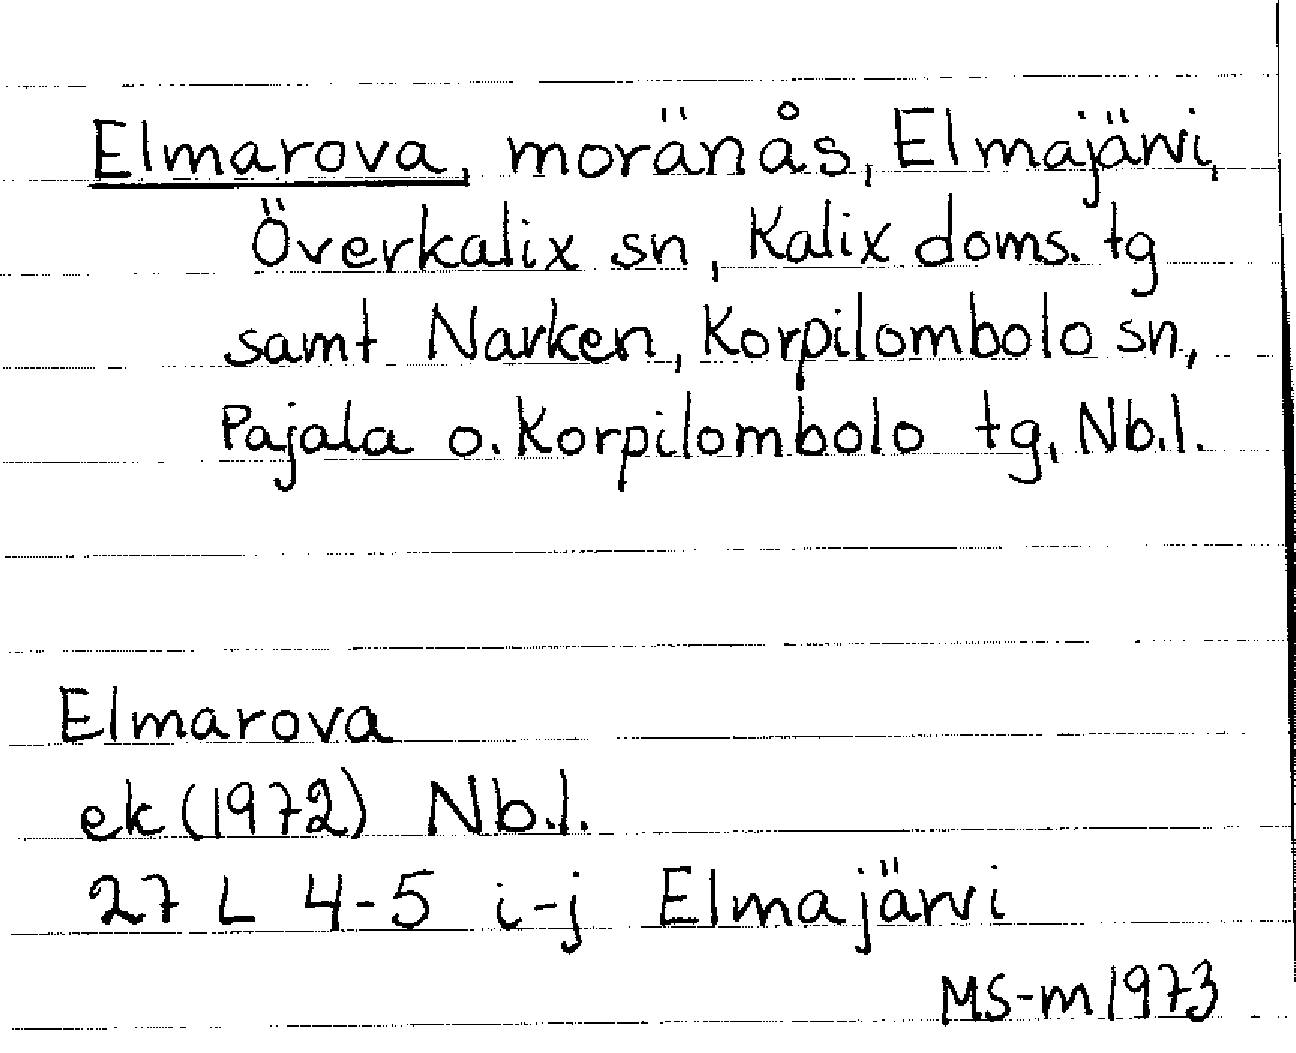 Elmarova, moränås, Elmajärvi,
Överkalix sn, Kalix doms. tg
samt Narken, Korpilombolo sn,
Pajala o. Korpilombolo tg, Nb.l.
Elmarova
ek (1972) Nb.l.
27 L 4-5 i-j Elmajärvi
MS-m 1973